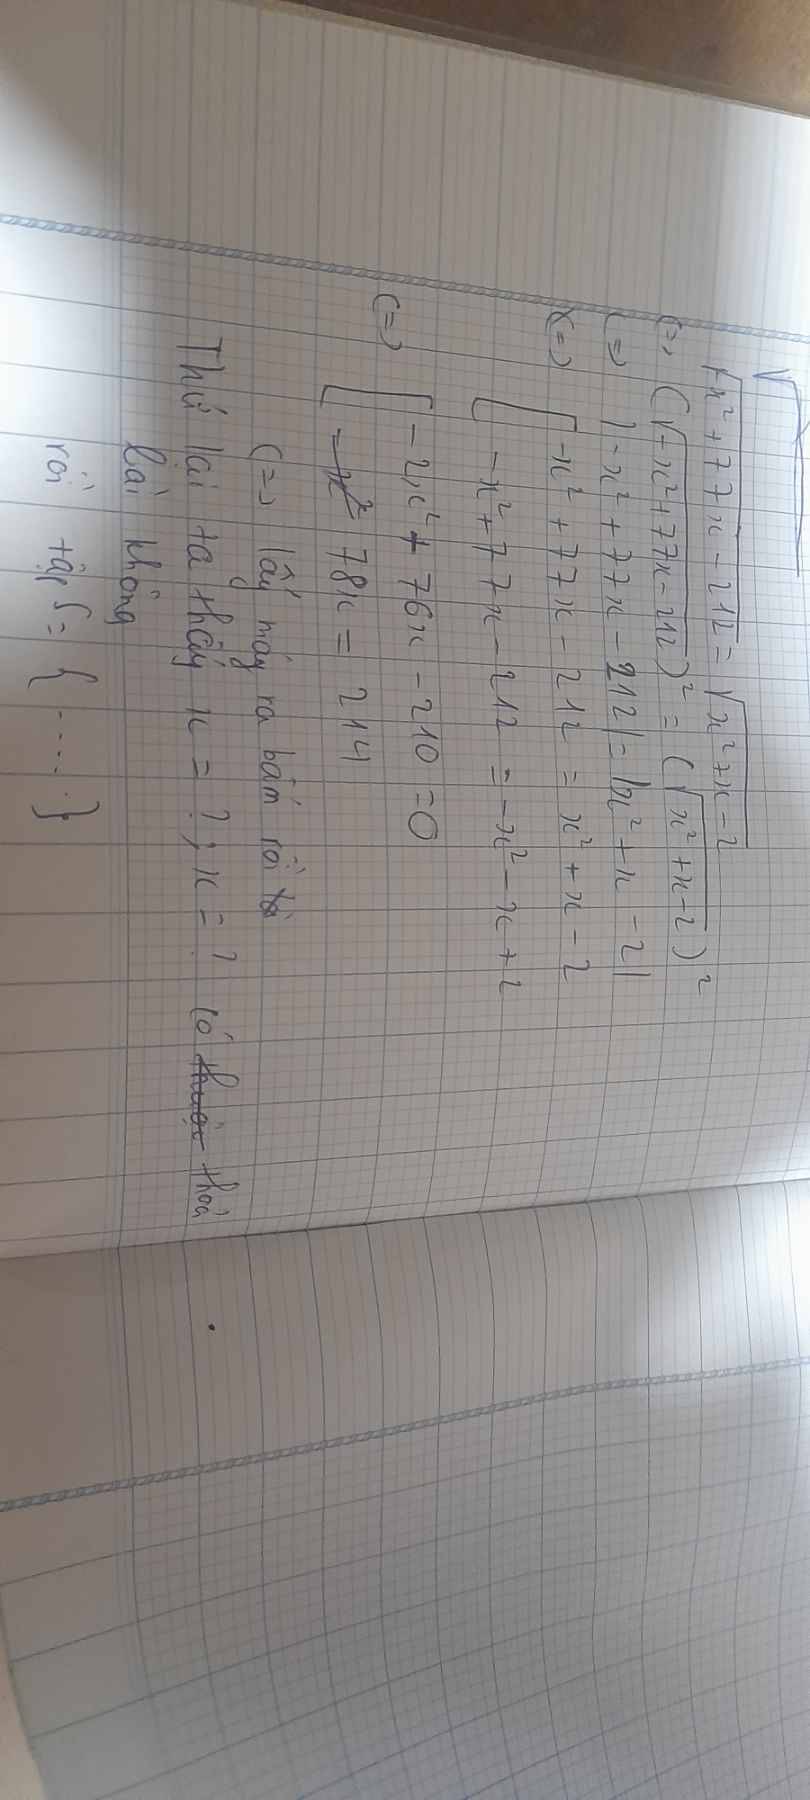 √-x² + 77x - 212 = √x² + x - 2
(=) (√-x² + 77x - 212)² = (√x² + x - 2)²
(=) |-x² + 77x - 212| = |x² + x - 2|
(=) [ -x² + 77x - 212 = x² + x - 2
-x² + 77x - 212 = -x² - x + 2
(=) [ -2x² + 76x - 210 = 0
78x = 214
(=) lấy máy ra bấm rồi
Thử lại ta thấy x = ? ; x = ? có thoả
bài không
rồi tập S = { ..... }